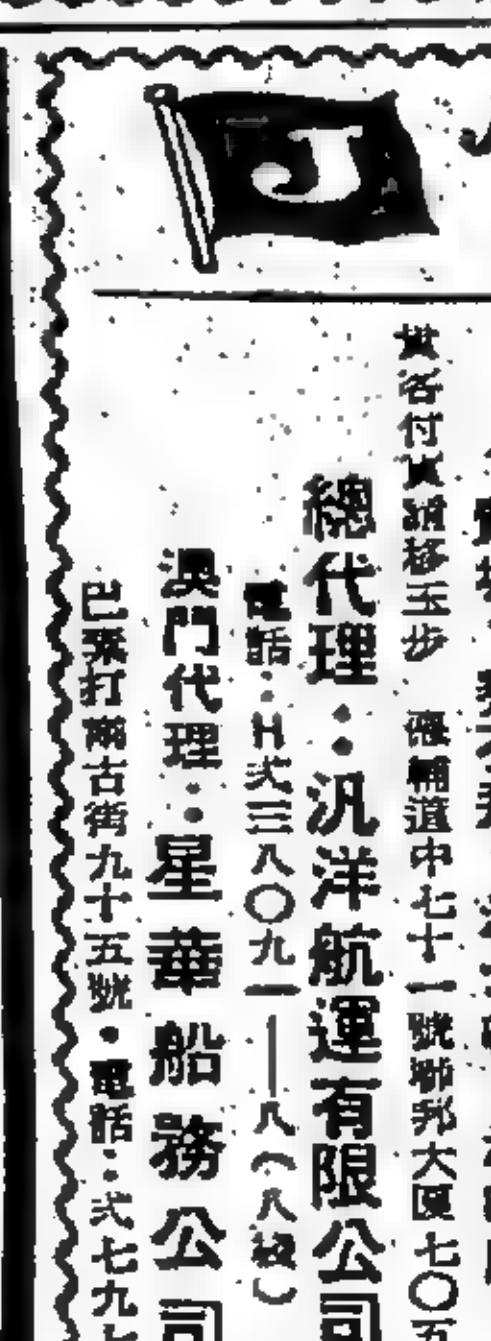 J
貨客付貨請移玉步　德輔道中七十一號聯邦大厦七〇五
總代理：汎洋航運有限公司
電話：H式三八〇九一——八（八線）
澳門代理：星華船務公司
巴素打爾古街九十五號・電話：式七九七